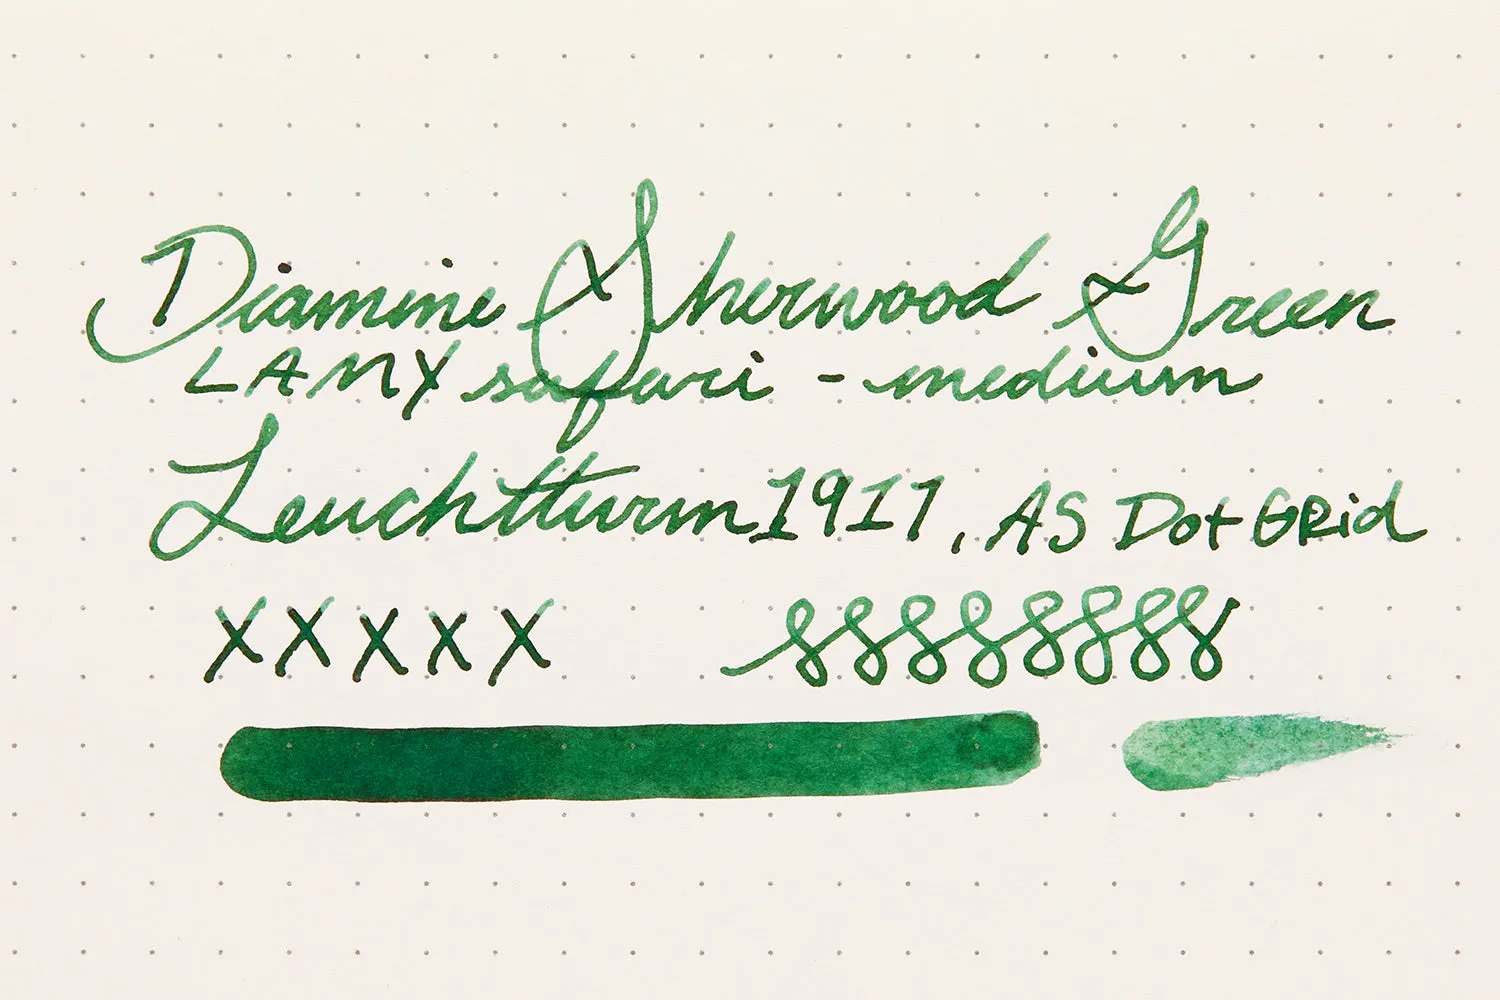 Diamine Sherwood Green
LAMY safari - medium
Leuchtturm1917, A5 Dot Grid
xxxxx